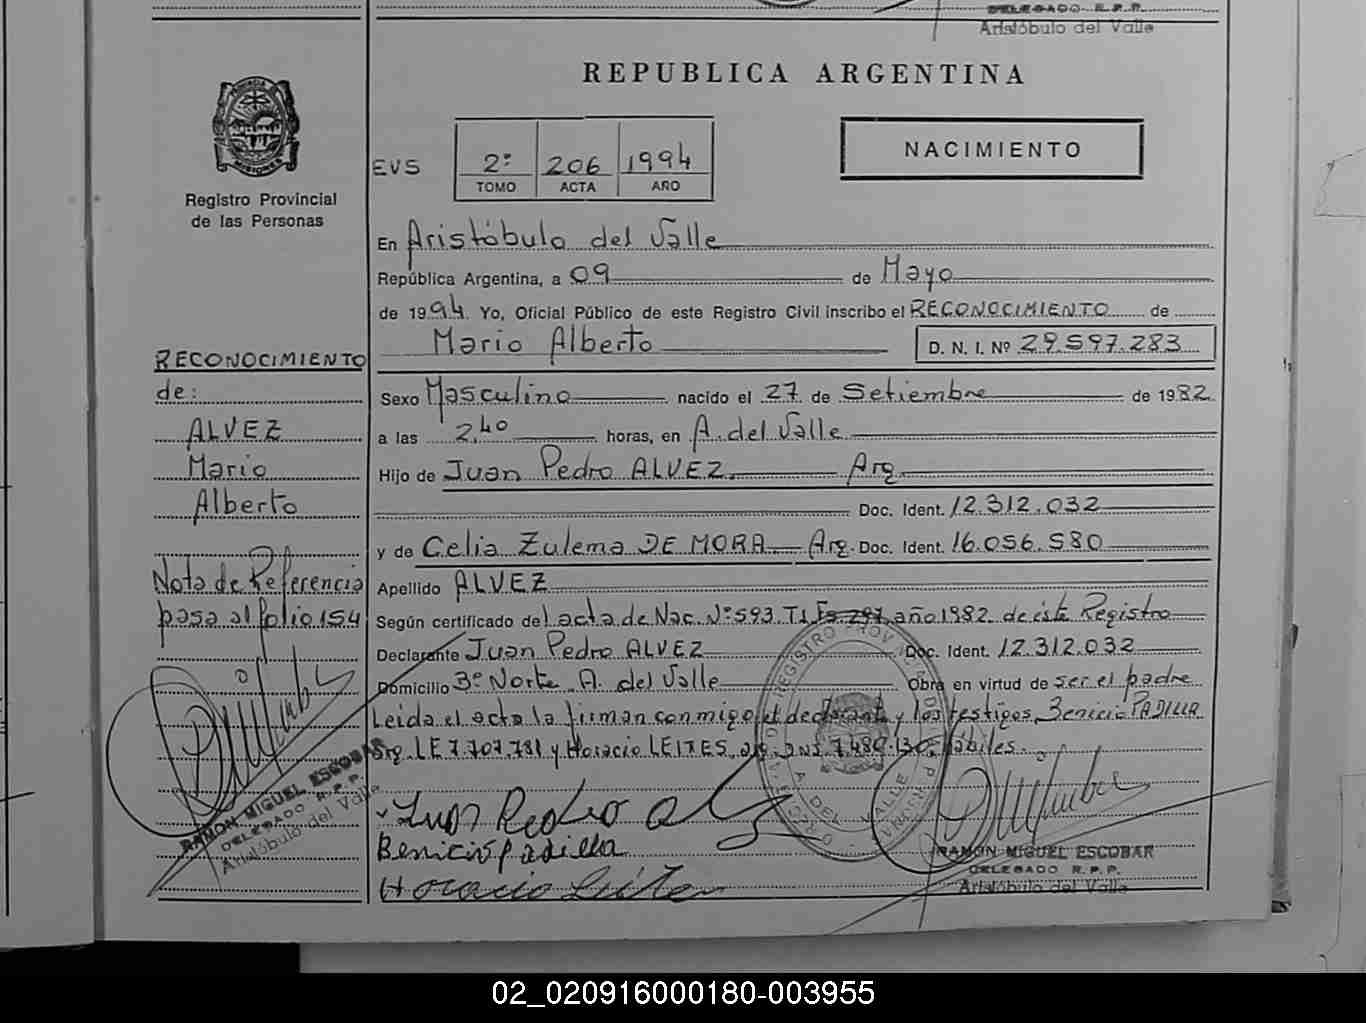 DELEGADO R.P.P.
Aristóbulo del Valle
REPUBLICA ARGENTINA
NACIMIENTO
EVS
2º 206 1994
TOMO ACTA AÑO
Registro Provincial
de las Personas
En Aristóbulo del Valle
República Argentina, a 09 de Mayo
de 1994. Yo, Oficial Público de este Registro Civil inscribo el RECONOCIMIENTO de
Mario Alberto D. N. I. Nº 29.597.283
Sexo Masculino nacido el 27 de Setiembre de 1982
a las 2,40 horas, en A. del Valle
Hijo de Juan Pedro ALVEZ. Arg.
Doc. Ident. 12.312.032
y de Celia Zulema DE MORA Arg. Doc. Ident. 16.056.580
Apellido ALVEZ
Según certificado de l acta de Nac. Nº 593. T1 Fs. 297, año 1982 de éste Registro
Declarante Juan Pedro ALVEZ Doc. Ident. 12.312.032
Domicilio 3º Norte A. del Valle Obra en virtud de ser el padre
Leída el acta la firman conmigo el declarante y los testigos, Benicio PADILLA
Arg. LE 7.707.781 y Horacio LEITES, arg. DNI 7.480.130 hábiles.
Juan Pedro
Benicio Padilla
Horacio
RAMON MIGUEL ESCOBAR
DELEGADO R.P.P.
Aristóbulo del Valle
RECONOCIMIENTO
de:
ALVEZ
Mario
Alberto
Nota de Referencia
pasa al folio 154
RAMON MIGUEL ESCOBAR
DELEGADO R.P.P.
Aristóbulo del Valle
02_020916000180-003955